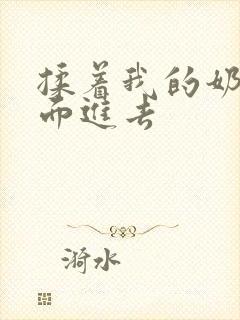 揉着我的奶
而进去
漪水